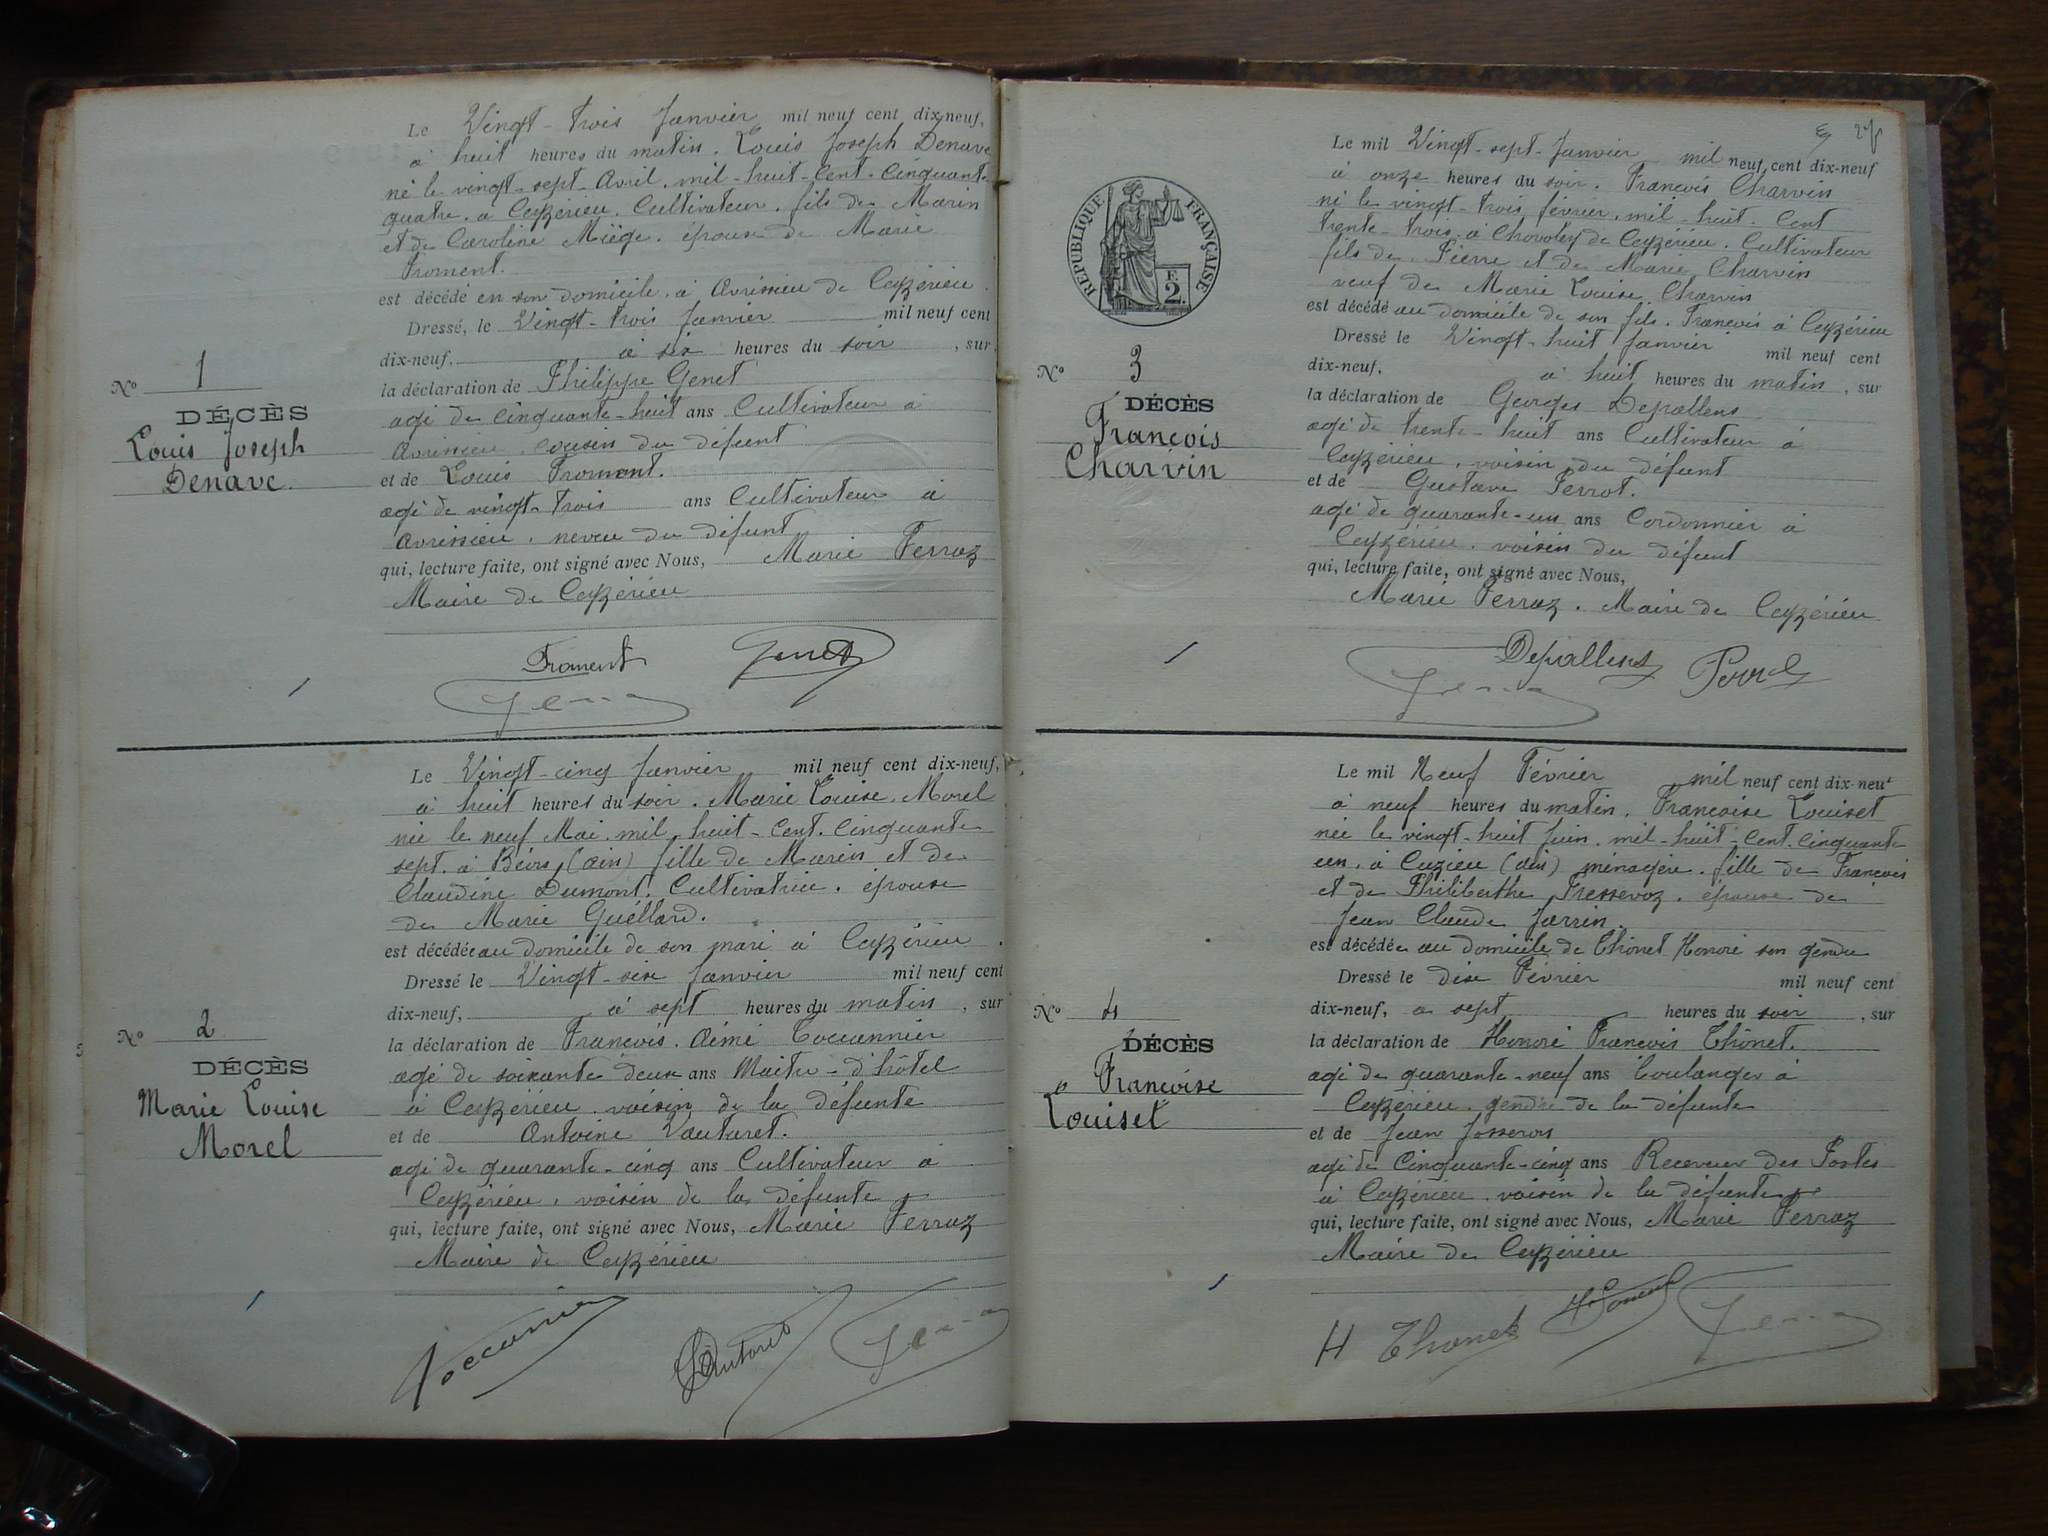 Le Vingt-trois Janvier mil neuf cent dix-neuf,
à huit heures du matin. Louis Joseph Denave
né le vingt-sept-Avril. mil-huit-cent-cinquante
quatre. à Ceyzérieu. Cultivateur. fils de Marin
et de Caroline Miège. époux de Marie
Froment.
est décédé en son domicile. à Avrissieu de Ceyzérieu.
Dressé, le Vingt-trois Janvier mil neuf cent
dix-neuf, à six heures du soir, sur
la déclaration de Philippe Genet
agé de cinquante-huit ans Cultivateur à
Avrissieu. cousin du défunt
et de Louis Froment.
agé de vingt-trois ans Cultivateur à
Avrissieu. neveu du défunt
qui, lecture faite, ont signé avec Nous, Marie Ferraz
Maire de Ceyzérieu
Nº 1
DÉCÈS
Louis Joseph
Denave.
Froment Genet
Le Vingt-cinq Janvier mil neuf cent dix-neuf,
à huit heures du soir. Marie Louise. Morel
née le neuf Mai. mil. huit-cent. cinquante
sept. à Béon, (ain) fille de Marin et de
Claudine Dumont. Cultivatrice. épouse
de Marie Guéllard.
est décédée au domicile de son mari à Ceyzérieu.
Dressé le Vingt-six Janvier mil neuf cent
dix-neuf, à sept heures du matin, sur
la déclaration de François. Aimé Toccannier
agé de soixante deux ans Maitre-d'hôtel
à Ceyzérieu. voisin de la défunte
et de Antoine Vauturet.
agé de quarante-cinq ans Cultivateur à
Ceyzérieu. voisin de la défunte
qui, lecture faite, ont signé avec Nous, Marie Ferraz
Maire de Ceyzérieu
Nº 2
DÉCÈS
Marie Louise
Morel
Le mil Vingt-sept-Janvier mil neuf cent dix-neuf
à onze heures du soir. François Charvin
né le vingt-trois février. mil-huit-cent
trente-trois à Chavoley de Ceyzérieu. Cultivateur
fils de Pierre et de Marie Charvin
veuf de Marie Louise. Charvin
est décédé au domicile de son fils. François à Ceyzérieu
Dressé le Vingt-huit Janvier mil neuf cent
dix-neuf, à huit heures du matin, sur
la déclaration de Georges Depallens
agé de trente-huit ans Cultivateur à
Ceyzérieu. voisin du défunt
et de Gustave Perrot.
agé de quarante-un ans Cordonnier à
Ceyzérieu. voisin du défunt
qui, lecture faite, ont signé avec Nous,
Marie Ferraz. Maire de Ceyzérieu
RÉPUBLIQUE FRANÇAISE
F.
2.
Nº 3
DÉCÈS
François
Charvin
Depallens
Le mil Neuf Février mil neuf cent dix-neuf
à neuf heures du matin. Françoise Louiset
née le vingt-huit juin. mil-huit-cent.cinquante-
un. à Cuzieu (ain) ménagère. fille de François
et de Philiberthe Tressevoz. épouse de
Jean Claude Jarrin.
est décédée au domicile de Thônet Honoré son gendre
Dressé le dix Février mil neuf cent
dix-neuf, a sept heures du soir, sur
la déclaration de Honoré François Thônet.
agé de quarante-neuf ans boulanger à
Ceyzérieu. gendre de la défunte
et de Jean Josserois
agé de Cinquante-cinq ans Receveur des Postes
à Ceyzérieu. voisin de la défunte
qui, lecture faite, ont signé avec Nous, Marie Ferraz
Maire de Ceyzérieu
Nº 4
DÉCÈS
Françoise
Louiset
H Thonet